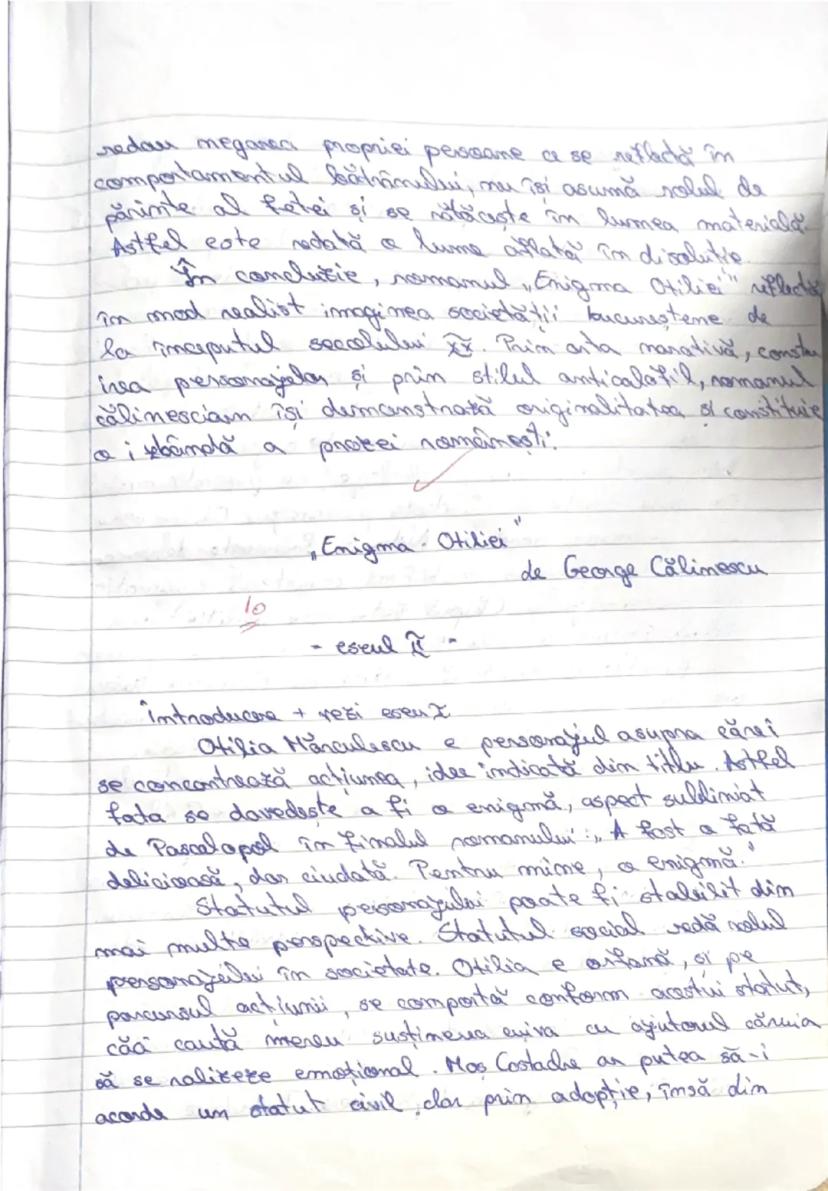 redau negarea propriei persoane ce se reflectă în
comportamentul bătrânului, nu își asumă rolul de
părinte al fetei și se rătăcește în lumea materială.
Astfel este redată o lume aflată în disoluție.
În concluzie, romanul „Enigma Otiliei" reflectă
în mod realist imaginea societății bucureștene de
la începutul secolului XX. Prin arta narativă, constru
irea personajelor și prin stilul anticalofil, romanul
călinescian își demonstrază originalitatea și constituie
o izbândă a prozei românești.
„Enigma Otiliei"
de George Călinescu
10
- eseul II -
introducere + vezi eseu I
Otilia Mărculescu e personajul asupra cărei
se concentrează acțiunea, idee indicată din titlu. Astfel
fata se dovedește a fi o enigmă, aspect subliniat
de Pascalopol în finalul romanului: „A fost o fată
delicioasă, dar ciudată. Pentru mine, o enigmă."
Statutul personajului poate fi stabilit din
mai multe perspective. Statutul social redă rolul
personajului în societate. Otilia e orfană, și pe
parcursul acțiunii, se comportă conform acestui statut,
căci caută mereu susținerea cuiva cu ajutorul căruia
să se ralizeze emoțional. Moș Costache ar putea să-i
acorde un statut civil clar prin adopție, însă din